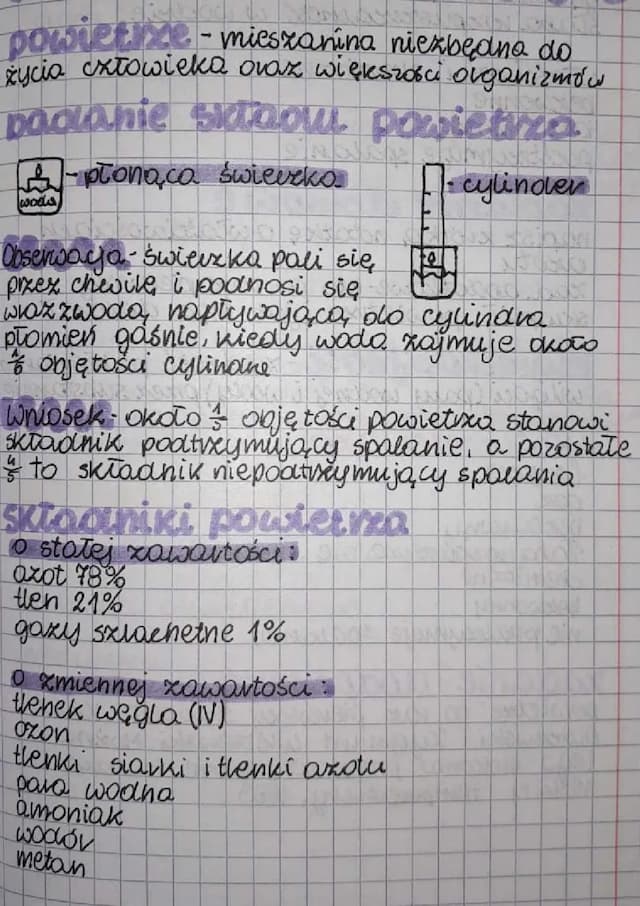 powietrze - mieszanina niezbędna do
życia człowieka oraz większości organizmów
badanie składu powietrza
woda
- płonąca świeczka
- cylinder
Obserwacja - świeczka pali się
przez chwilę i podnosi się
wraz z wodą, napływającą, do cylindra
płomień gaśnie, kiedy woda zajmuje około
objętości cylindra
Wniosek - około 1/5 objętości powietrza stanowi
składnik podtrzymujący spalanie, a pozostałe
4/5 to składnik niepodtrzymujący spalania
składniki powietrza
o stałej zawartości:
azot 78%
tlen 21%
gazy szlachetne 1%
o zmiennej zawartości:
tlenek węgla (IV)
ozon
tlenki siarki i tlenki azotu
para wodna
amoniak
wodór
metan